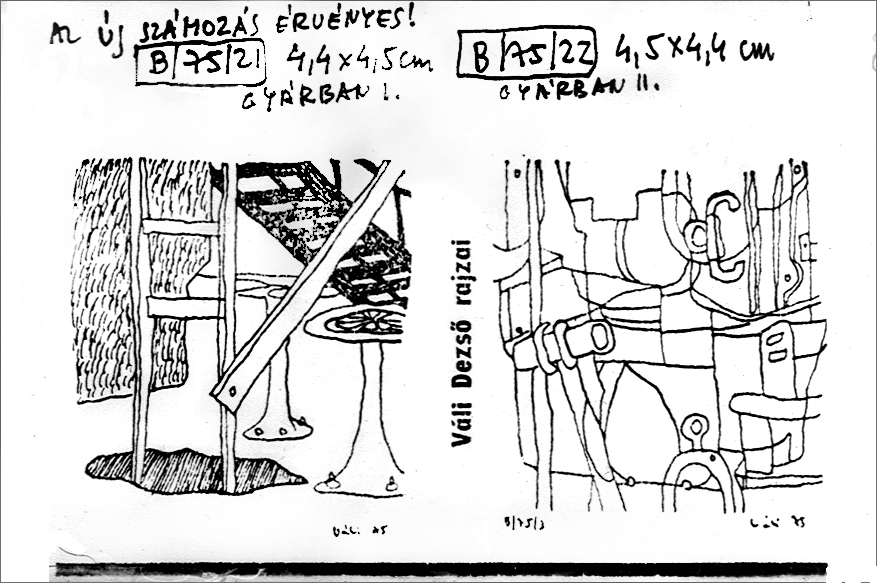 AZ ÚJ SZÁMOZÁS ÉRVÉNYES!
B/75/21 4,4×4,5cm
GYÁRBAN I.
B/75/22 4,5×4,4 cm
GYÁRBAN II.
Váli Dezső rajzai
Váli 75
B/75/3
Váli 75